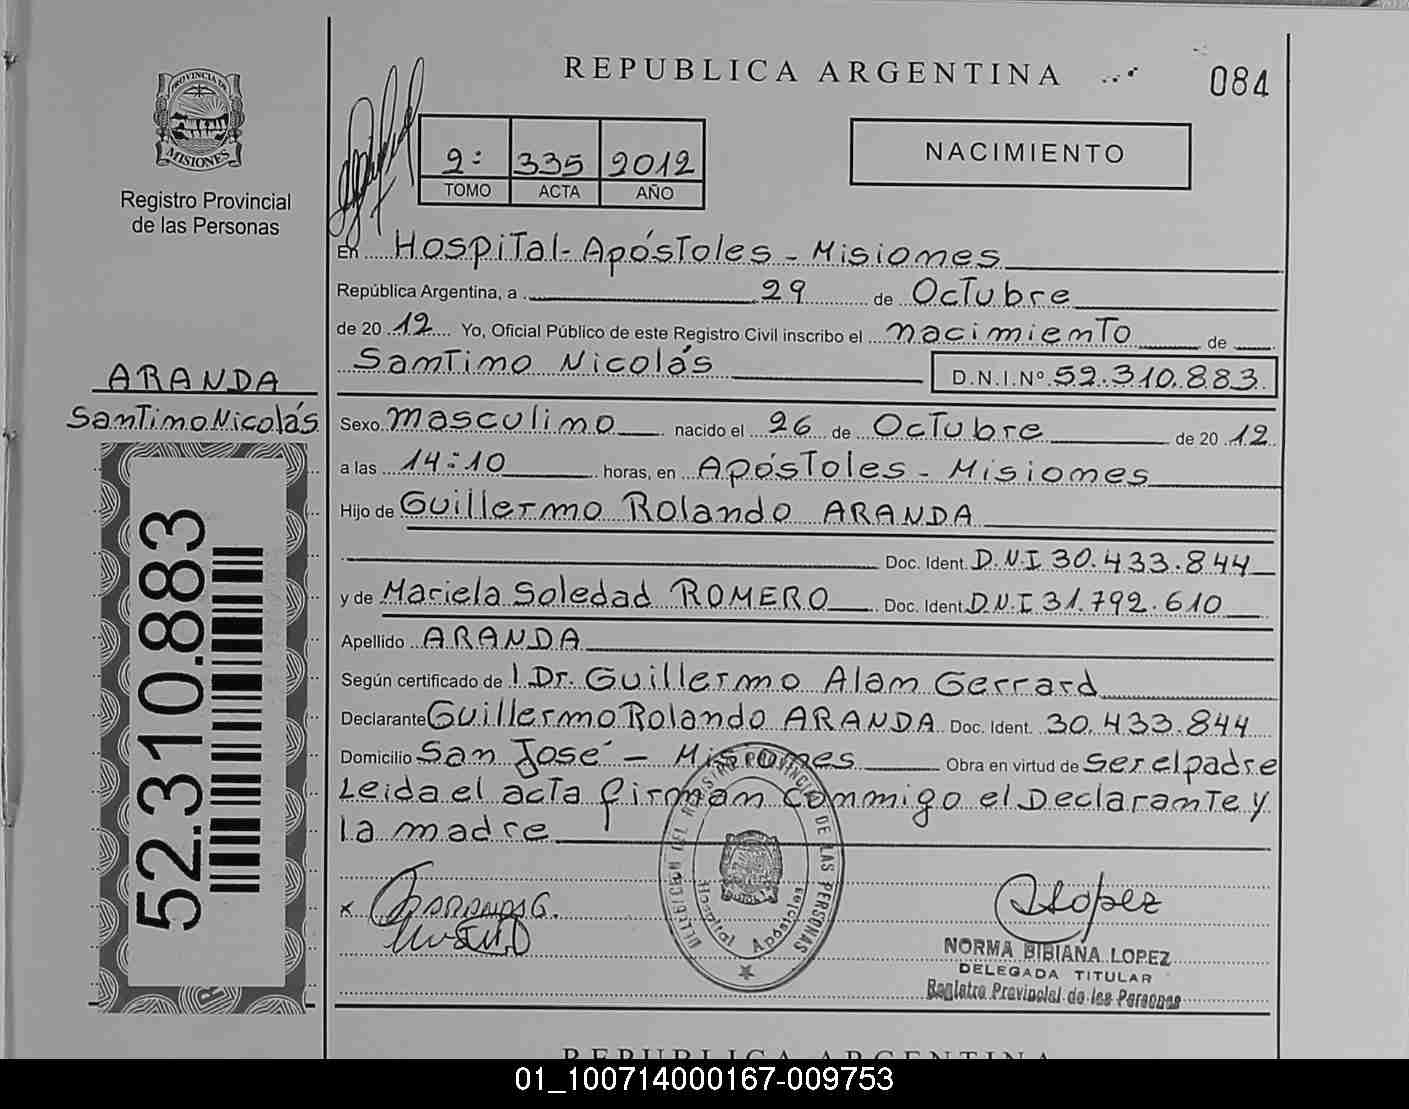 REPUBLICA ARGENTINA
084
PROVINCIA DE
MISIONES
Registro Provincial
de las Personas
2: 335 2012
TOMO ACTA AÑO
NACIMIENTO
En Hospital - Apóstoles - Misiones
República Argentina, a 29 de Octubre
de 20 12 Yo, Oficial Público de este Registro Civil inscribo el nacimiento de
Santino Nicolás D.N.I.Nº 52.310.883
ARANDA
Santino Nicolás
Sexo masculino nacido el 26 de Octubre de 20 12
a las 14:10 horas, en Apóstoles - Misiones
Hijo de Guillermo Rolando ARANDA
Doc. Ident. D.N.I 30.433.844
y de Mariela Soledad ROMERO Doc. Ident. D.N.I 31.792.610
Apellido ARANDA
Según certificado de l Dr. Guillermo Alan Gerrard
Declarante Guillermo Rolando ARANDA Doc. Ident. 30.433.844
Domicilio San José - Misiones Obra en virtud de Ser el padre
Leida el acta firman conmigo el Declarante y
la madre
52.310.883
DELEGACION DEL REGISTRO PROVINCIAL DE LAS PERSONAS
Hospital Apóstoles
x ARANDA G.
Lopez
NORMA BIBIANA LOPEZ
DELEGADA TITULAR
Registro Provincial de las Personas
REPUBLICA ARGENTINA
01_100714000167-009753